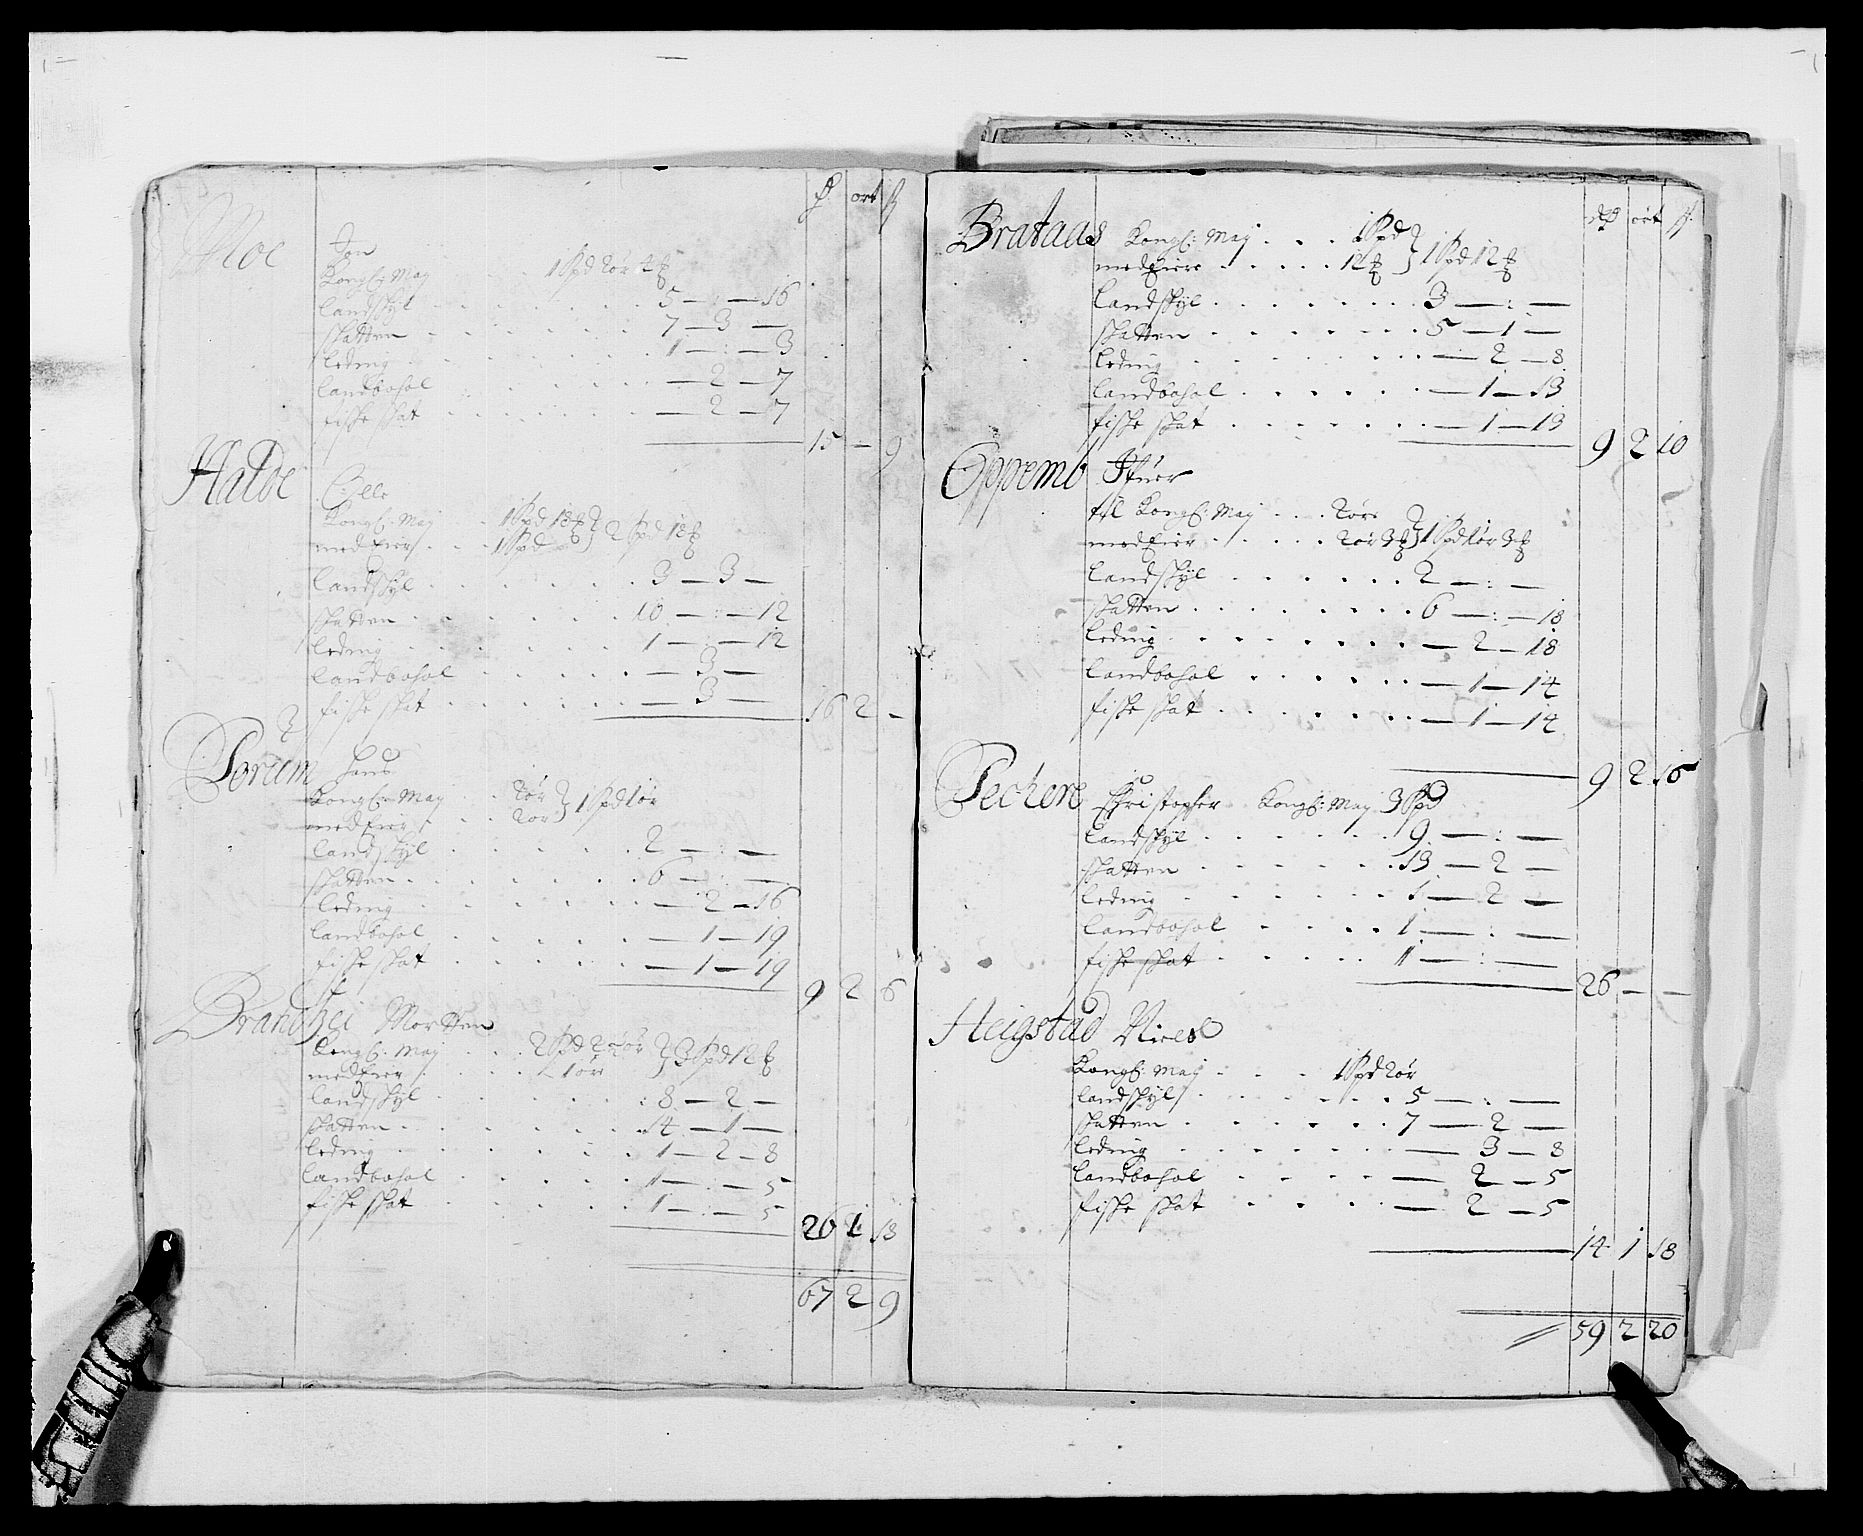 ort ß
Moe Jon
Kongl: May 1 Spd 2ør 4
landskyl 5 — : — 16
skatten 7 — 3 —
leding 1 — : — 3
landbohol — 2 — 7
fiske skat — 2 — 7
15 — 9
Halde
Kongl: May 1 Spd 18 } 2 Spd 18
med Eier 1 Spd
landskyl 3 — 3 —
skatten 10 — : — 12
leding 1 — : — 12
landbohol — 3 —
fiske skat — 3 —
16 2 —
Torum hans
Kongl: May 2ør } 1 Spd 1ør
med Eier 2ør
landskyl 2 — : —
skatten 6 — : —
leding — 2 — 16
landbohol — 1 — 19
fiske skat — 1 — 19
9 2 6
Brandzei Mortten
Kongl: May 2 Spd 2ør } 3 Spd 12
med Eier 1ør
landskyl 8 — 2 —
skatten 14 — 1 —
leding 1 — 2 — 8
landbohol 1 — : — 5
fiske skat 1 — : — 5
26 2 18
67 2 9
ort ß
Brataas Kongl: May 1 Spd } 1 Spd 12
med Eiere 12
landskyl 3 — : —
skatten 5 — 1 —
leding — 2 — 8
landbohol — 1 — 13
fiske skat — 1 — 13
9 2 10
Oppemo Ifuer
til Kongl: May 2ør } 1 Spd 1ør 3
med Eier 2ør 3
landskyl 2 — : —
skatten 6 — : — 18
leding — 2 — 18
landbohol — 1 — 14
fiske skat — 1 — 14
9 2 16
Techere Christopher Kongl: May 3 Spd
landskyl 9 — : —
skatten 13 — 2 —
leding 1 — 2 —
landbohol 1 — : —
fiske skat 1 — : —
26 — —
Heigstad Niels
Kongl: May 1 Spd 2ør
landskyl 5 — : —
skatten 7 — 2 —
leding — 3 — 8
landbohol — 2 — 5
fiske skat — 2 — 5
14 1 18
59 2 20